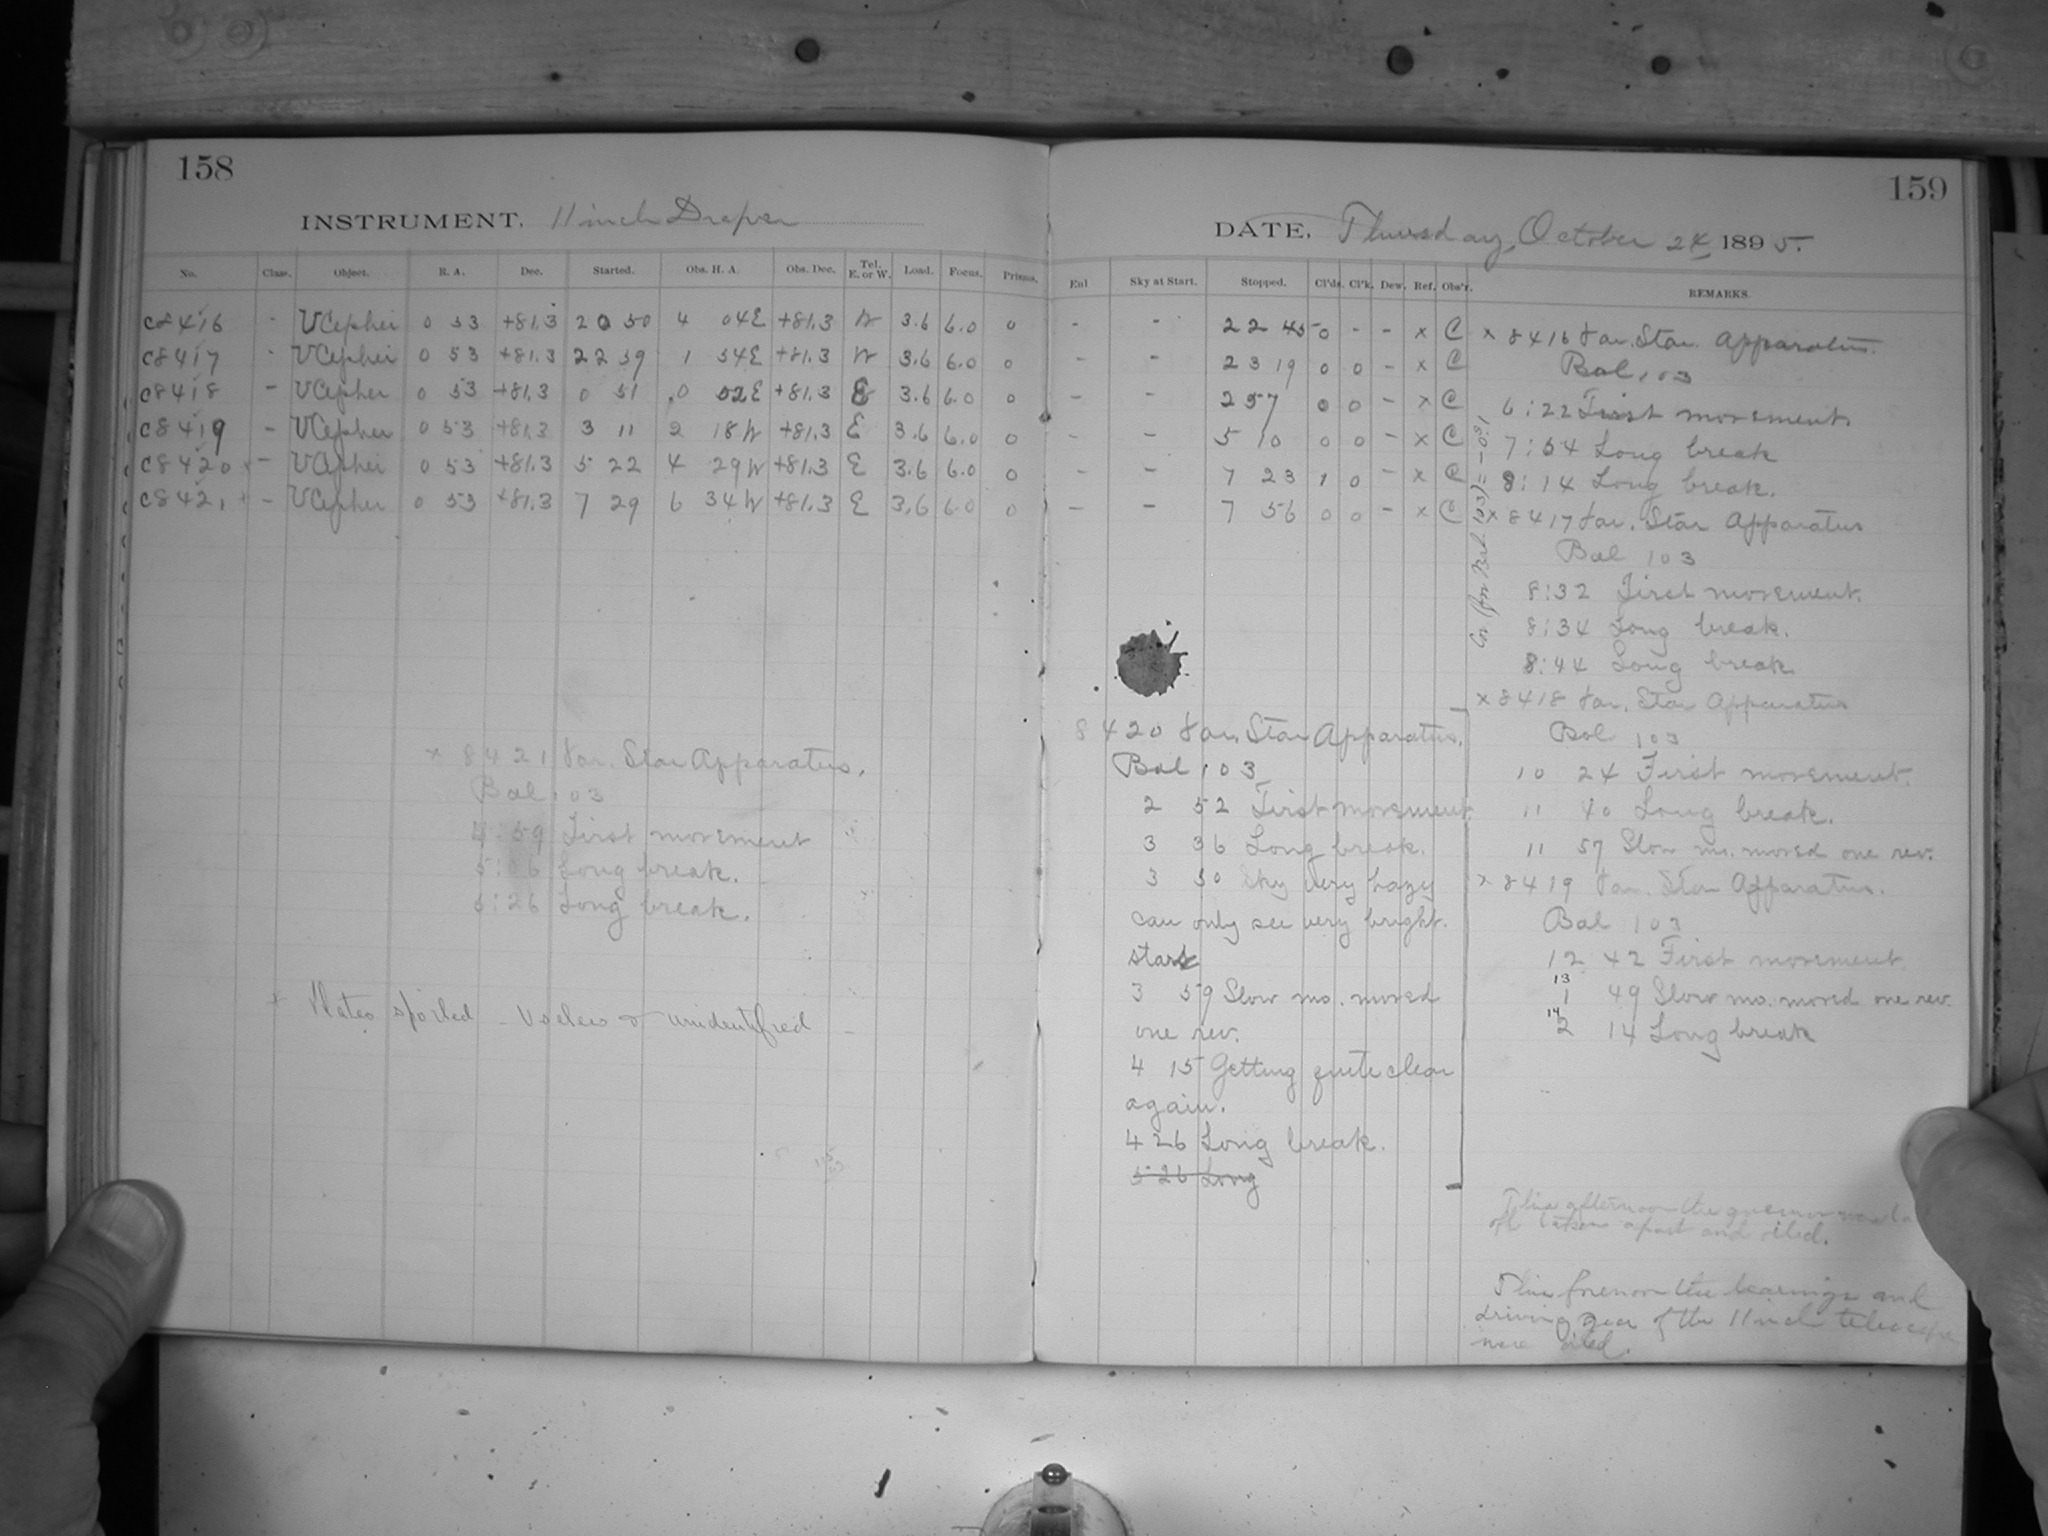 158
INSTRUMENT. 11 inch Draper
No. Class. Object. R. A. Dec. Started. Obs. H. A. Obs. Dec. Tel. E. or W. Load. Focus. Prisms.
C8416 - U Cephei 0 53 +81.3 20 50 4 04E +81.3 W 3.6 6.0 0
C8417 - U Cephei 0 53 +81.3 22 59 1 54E +81.3 W 3.6 6.0 0
C8418 - U Cephei 0 53 +81.3 0 51 0 02E +81.3 E 3.6 6.0 0
C8419 - U Cephei 0 53 +81.3 3 11 2 18W +81.3 E 3.6 6.0 0
C8420 x - U Cephei 0 53 +81.3 5 22 4 29W +81.3 E 3.6 6.0 0
C8421 + - U Cephei 0 53 +81.3 7 29 6 34W +81.3 E 3.6 6.0 0
x 8421 Var. Star Apparatus.
Bal 103
4:59 First movement
5:06 Long break.
5:26 Long break.
x Plates spoiled - Useless or unidentified -
159
DATE, Thursday, October 24 1895.
Enl Sky at Start. Stopped. Cl'ds. Cl'k. Dew. Ref. Obs'r. REMARKS.
- - 22 45 0 - - x C
- - 23 19 0 0 - x C
- - 2 57 0 0 - x C
- - 5 10 0 0 - x C
- - 7 23 1 0 - x C
- - 7 56 0 0 - x C
8420 Var. Star Apparatus.
Bal 103
2 52 First movement.
3 36 Long break.
3 50 Sky very hazy
can only see very bright.
stars
3 59 Slow mo. moved
one rev.
4 15 Getting quite clear
again.
4 26 Long break.
5 26 Long
x 8416 Var. Star Apparatus.
Bal 103
6:22 First movement
7:54 Long break
8:14 Long break.
x 8417 Var. Star Apparatus
Bal 103
8:32 First movement.
8:34 Long break.
8:44 Long break.
x 8418 Var. Star Apparatus
Bal 103
10 24 First movement.
11 40 Long break.
11 57 Slow mo. moved one rev.
x 8419 Var. Star Apparatus.
Bal 103
12 42 First movement
13
1 49 Slow mo. moved one rev.
14
2 14 Long break
This afternoon the governor was
taken apart and oiled.
This forenoon the bearings and
driving gear of the 11 inch telescope
were oiled.